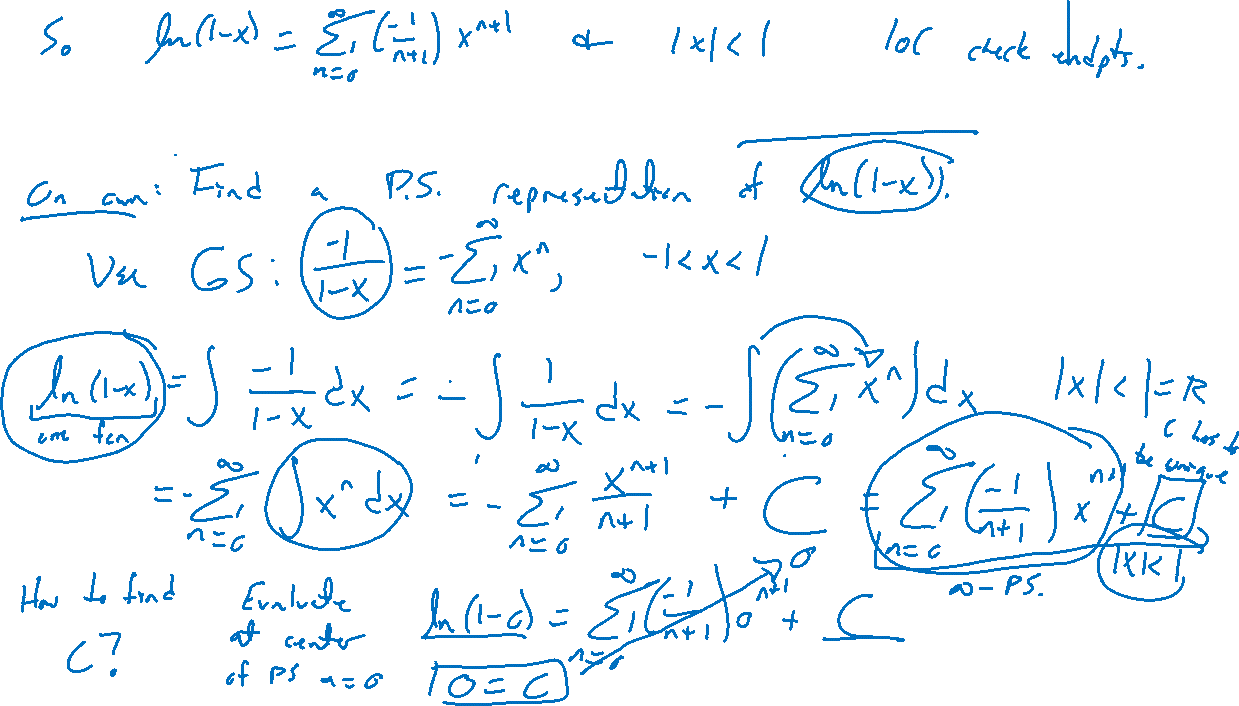 So ln(1-x) = ∑_{n=0}^{∞} (-1/(n+1)) x^{n+1} on |x| < 1 IOC check endpts.
On own: Find a P.S. representation of ln(1-x).
Use GS: -1/(1-x) = -∑_{n=0}^{∞} x^n, -1<x<1
ln(1-x) = ∫ -1/(1-x) dx = -∫ 1/(1-x) dx = -∫ (∑_{n=0}^{∞} x^n) dx |x| < 1 = R
one fcn
C has to be unique
= -∑_{n=0}^{∞} ∫ x^n dx = -∑_{n=0}^{∞} x^{n+1}/(n+1) + C = ∑_{n=0}^{∞} (-1/(n+1)) x^{n+1} + C
∞-PS. |x|<1
How to find C?
Evaluate at center of PS a=0
ln(1-0) = ∑_{n=0}^{∞} (-1/(n+1)) 0^{n+1} + C
0
0 = C